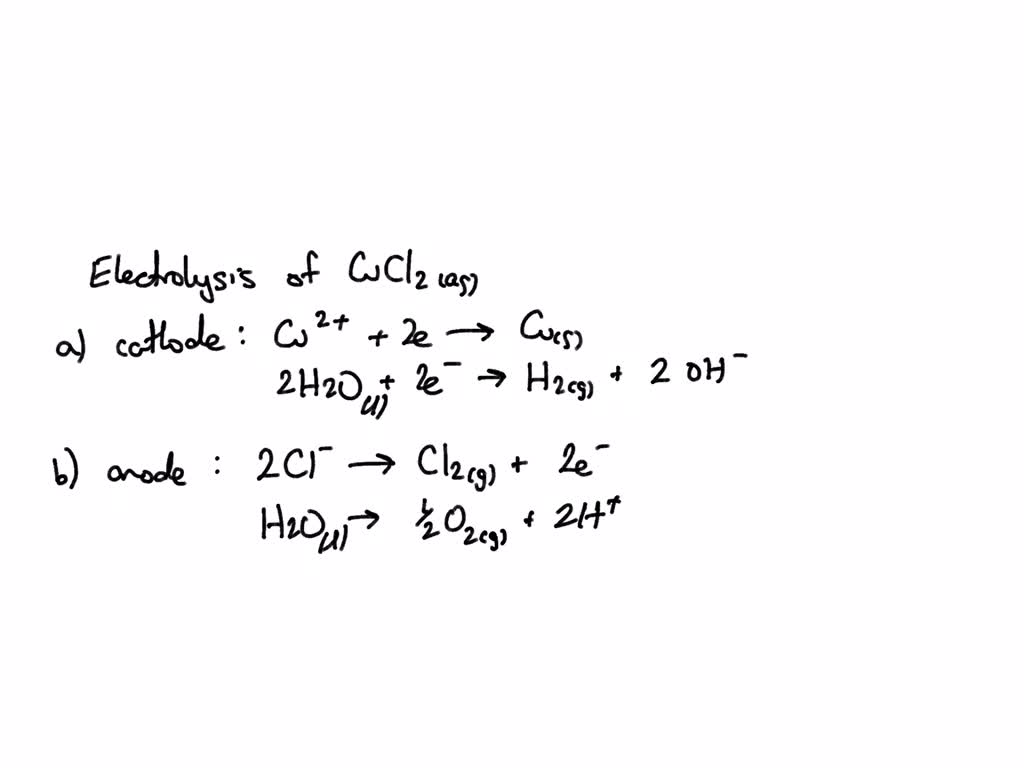 Electrolysis of CuCl2(aq)
a) cathode : Cu²⁺ + 2e → Cu(s)
2H2O(l) + 2e⁻ → H2(g) + 2 OH⁻
b) anode : 2Cl⁻ → Cl2(g) + 2e⁻
H2O(l) → ½O2(g) + 2H⁺